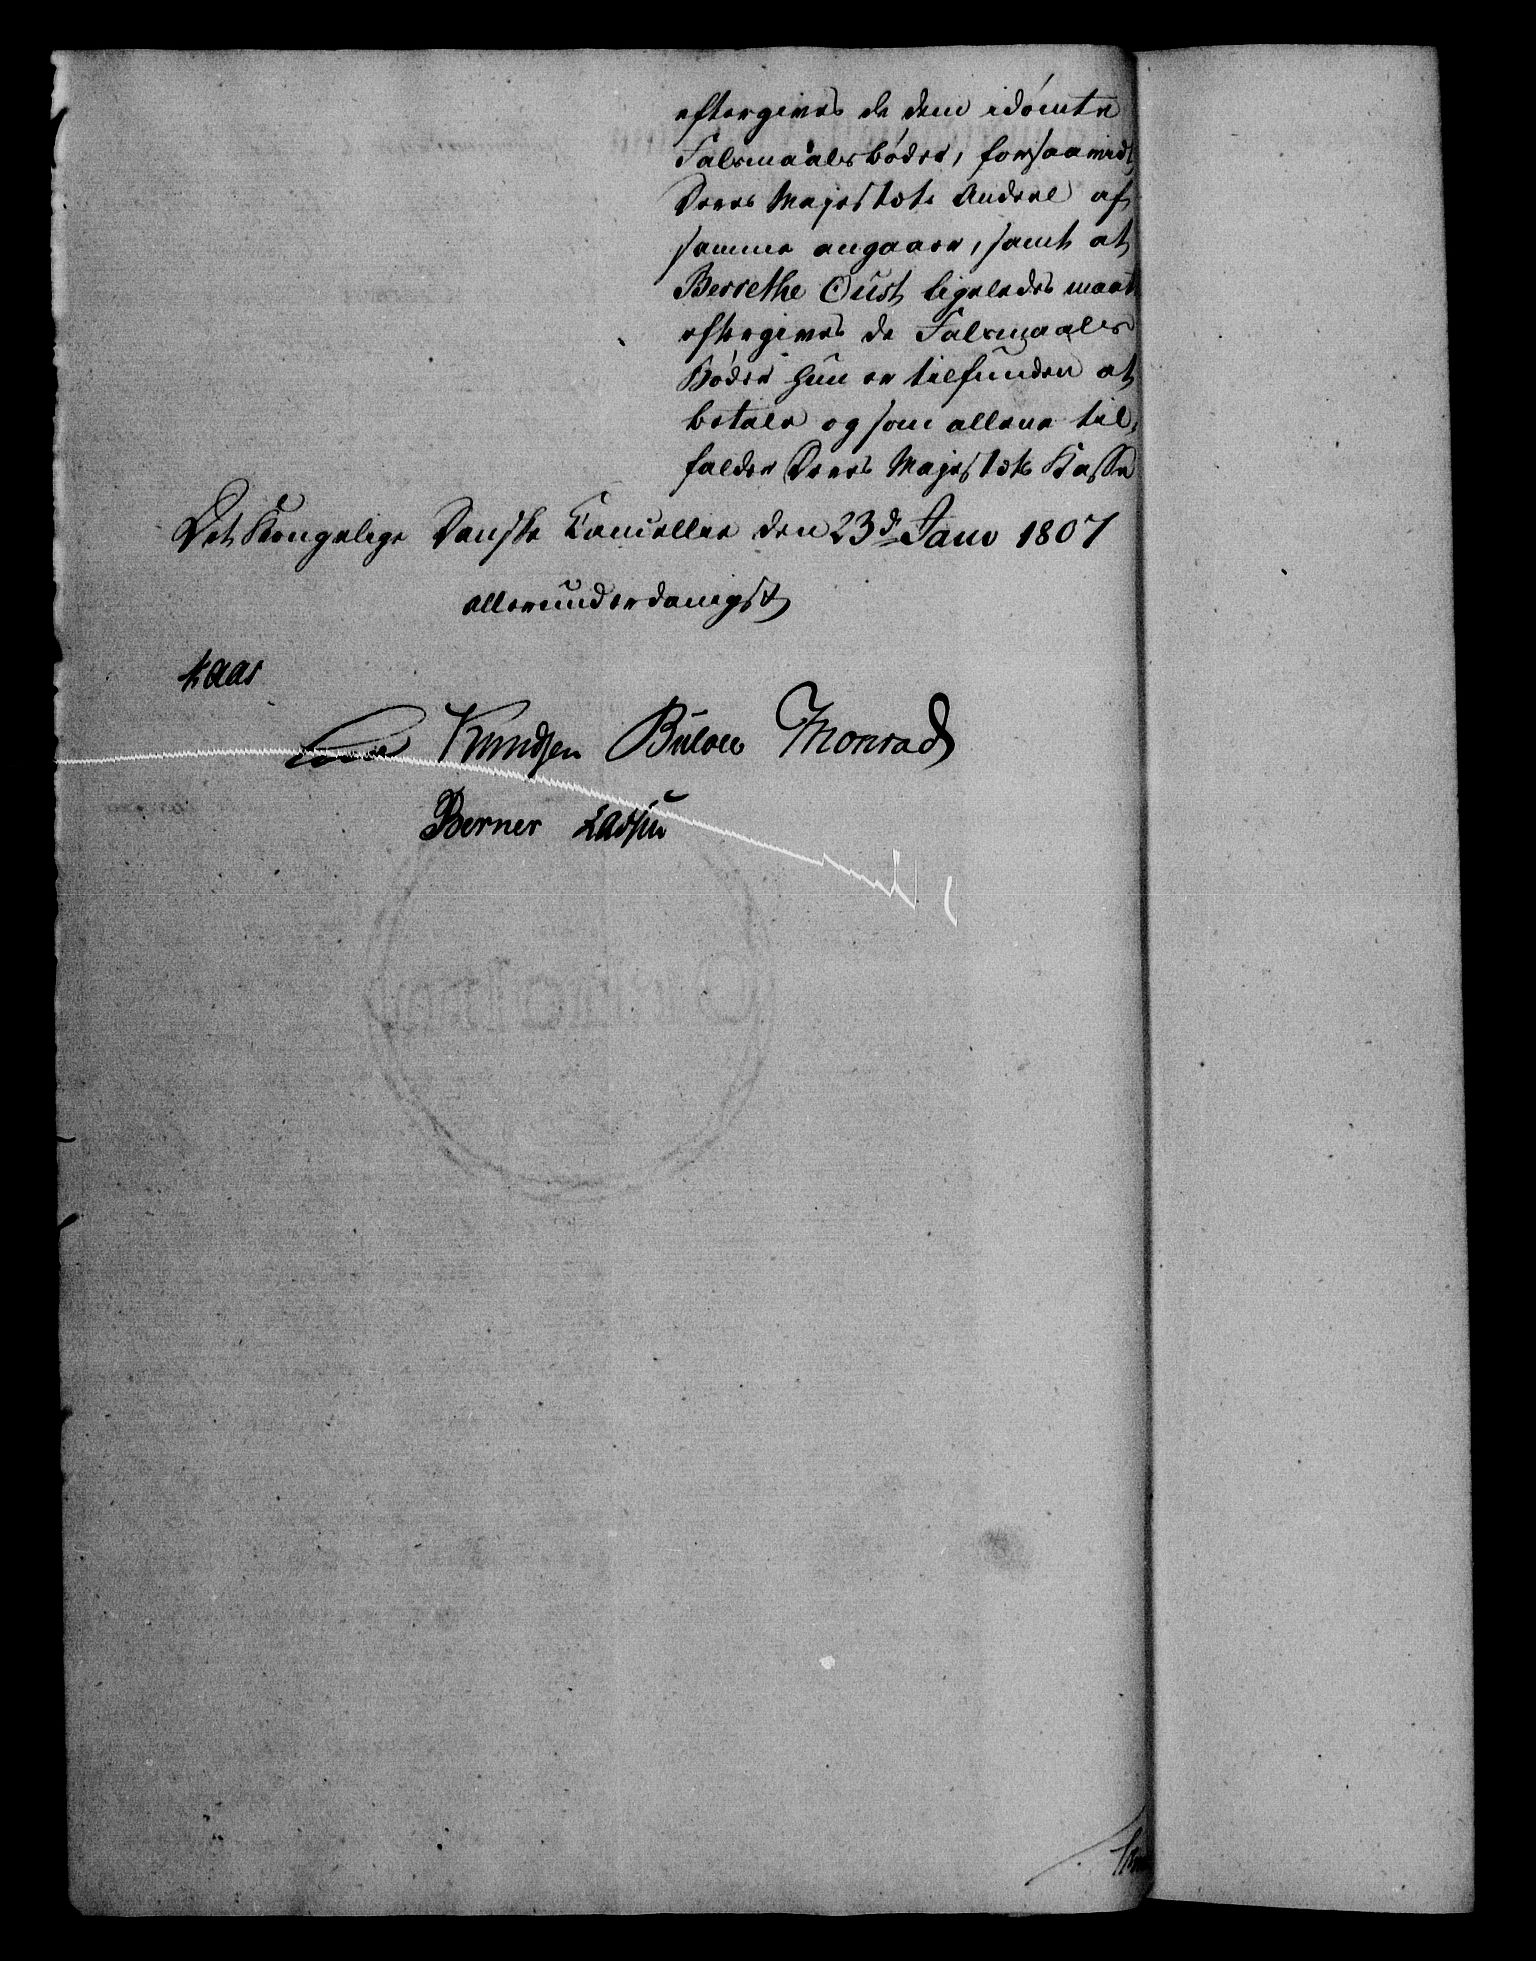 eftergives de dem idømte
Falsmaalsbøder, forsaavidt
Deres Majestæts Andeel af
samme angaaer, samt at
Berrethe Oust ligeledes maae
eftergives de Falsmaals
Bøder hun er tilfunden at
betale og som allene til,
falder Deres Majestæts Kasse
Det Kongelige Danske Cancellie den 23de Janv 1807
allerunderdanigst
Kaas
Knudsen Bülow Monrad
Berner Lassen